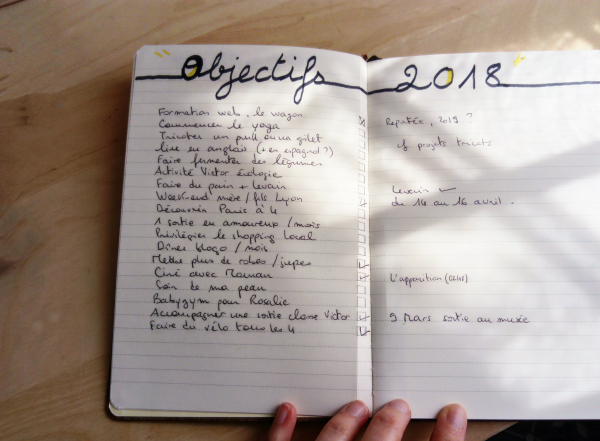 Objectifs 2018
Formation web. le wagon
Commencer le yoga
Tricoter un pull ou un gilet
lire en anglais (+ en espagnol ?)
Faire fermenter des légumes
Activité Victor écologie
Faire du pain + levain
Week-end mère / fils Lyon
Découvrir Paris à 4
1 sortie en amoureux / mois
Privilégier le shopping local
Dîner blogo / mois
Mettre plus de robes / jupes
Ciné avec Maman
Soin de ma peau
Babygym pour Rosalie
Accompagner une sortie classe Victor
Faire du vélo tous les 4
Reportée, 2019 ?
cf projets tricots
Levain
du 14 au 16 avril.
L'apparition
9 Mars sortie au musée